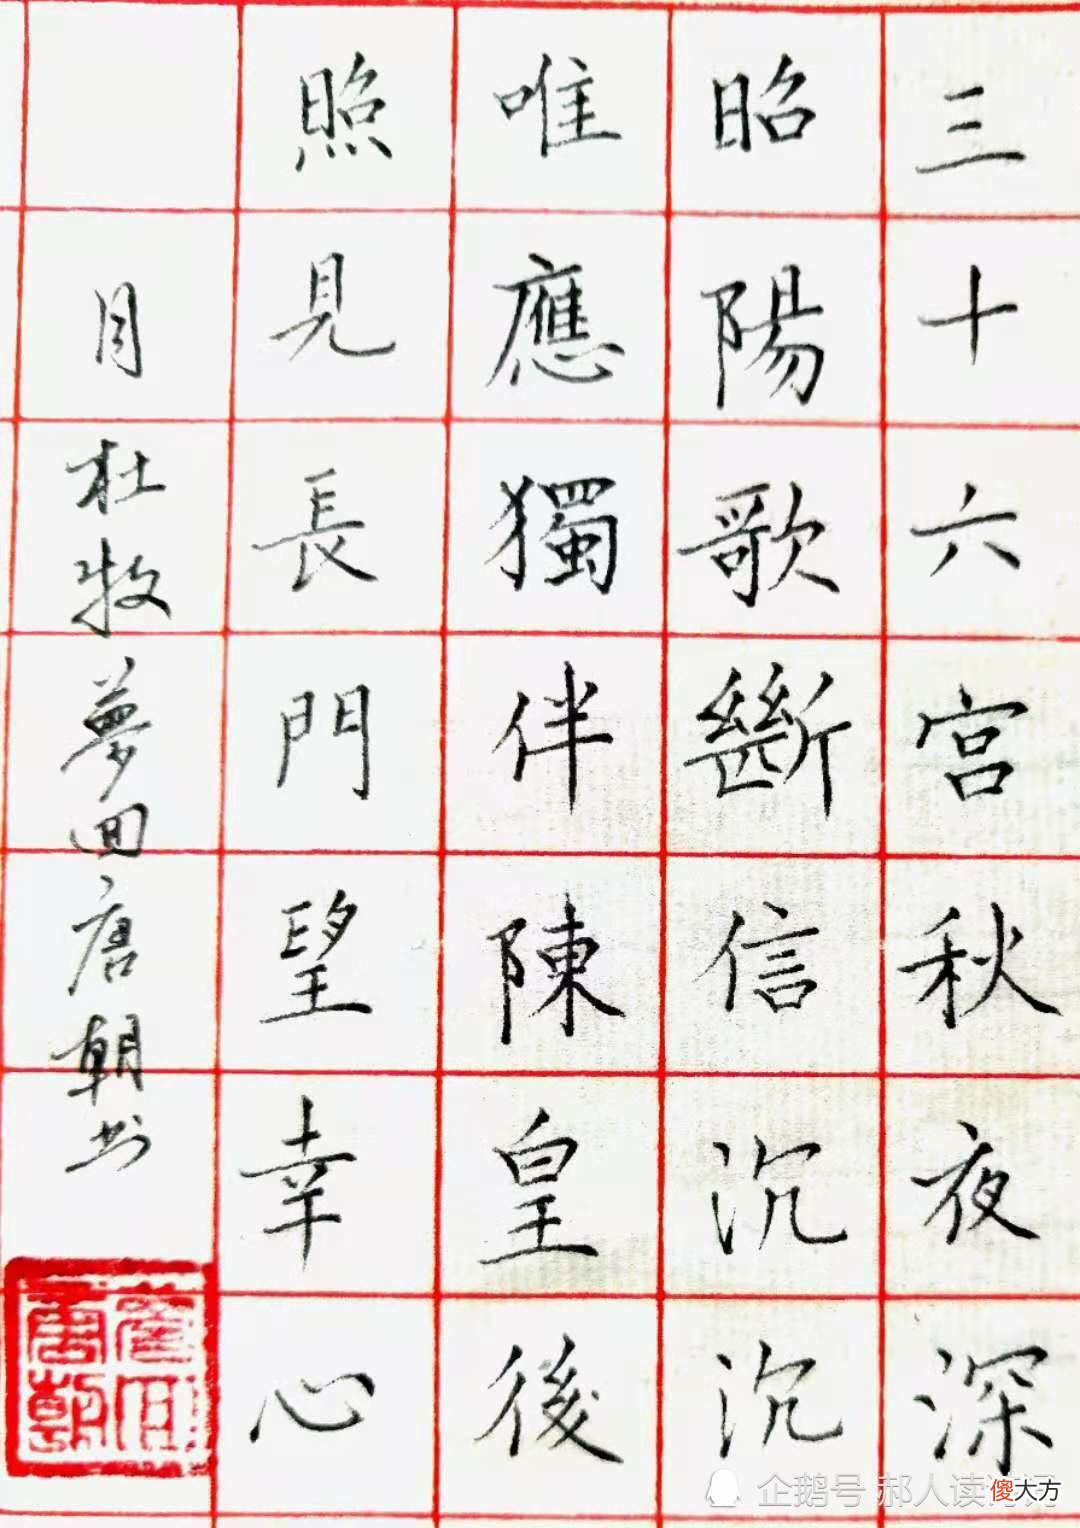 三十六宫秋夜深
昭陽歌斷信沉沉
唯應獨伴陳皇後
照見長門望幸心
月 杜牧 夢回唐朝书
夢回唐朝
企鹅号 郝人读
傻大方